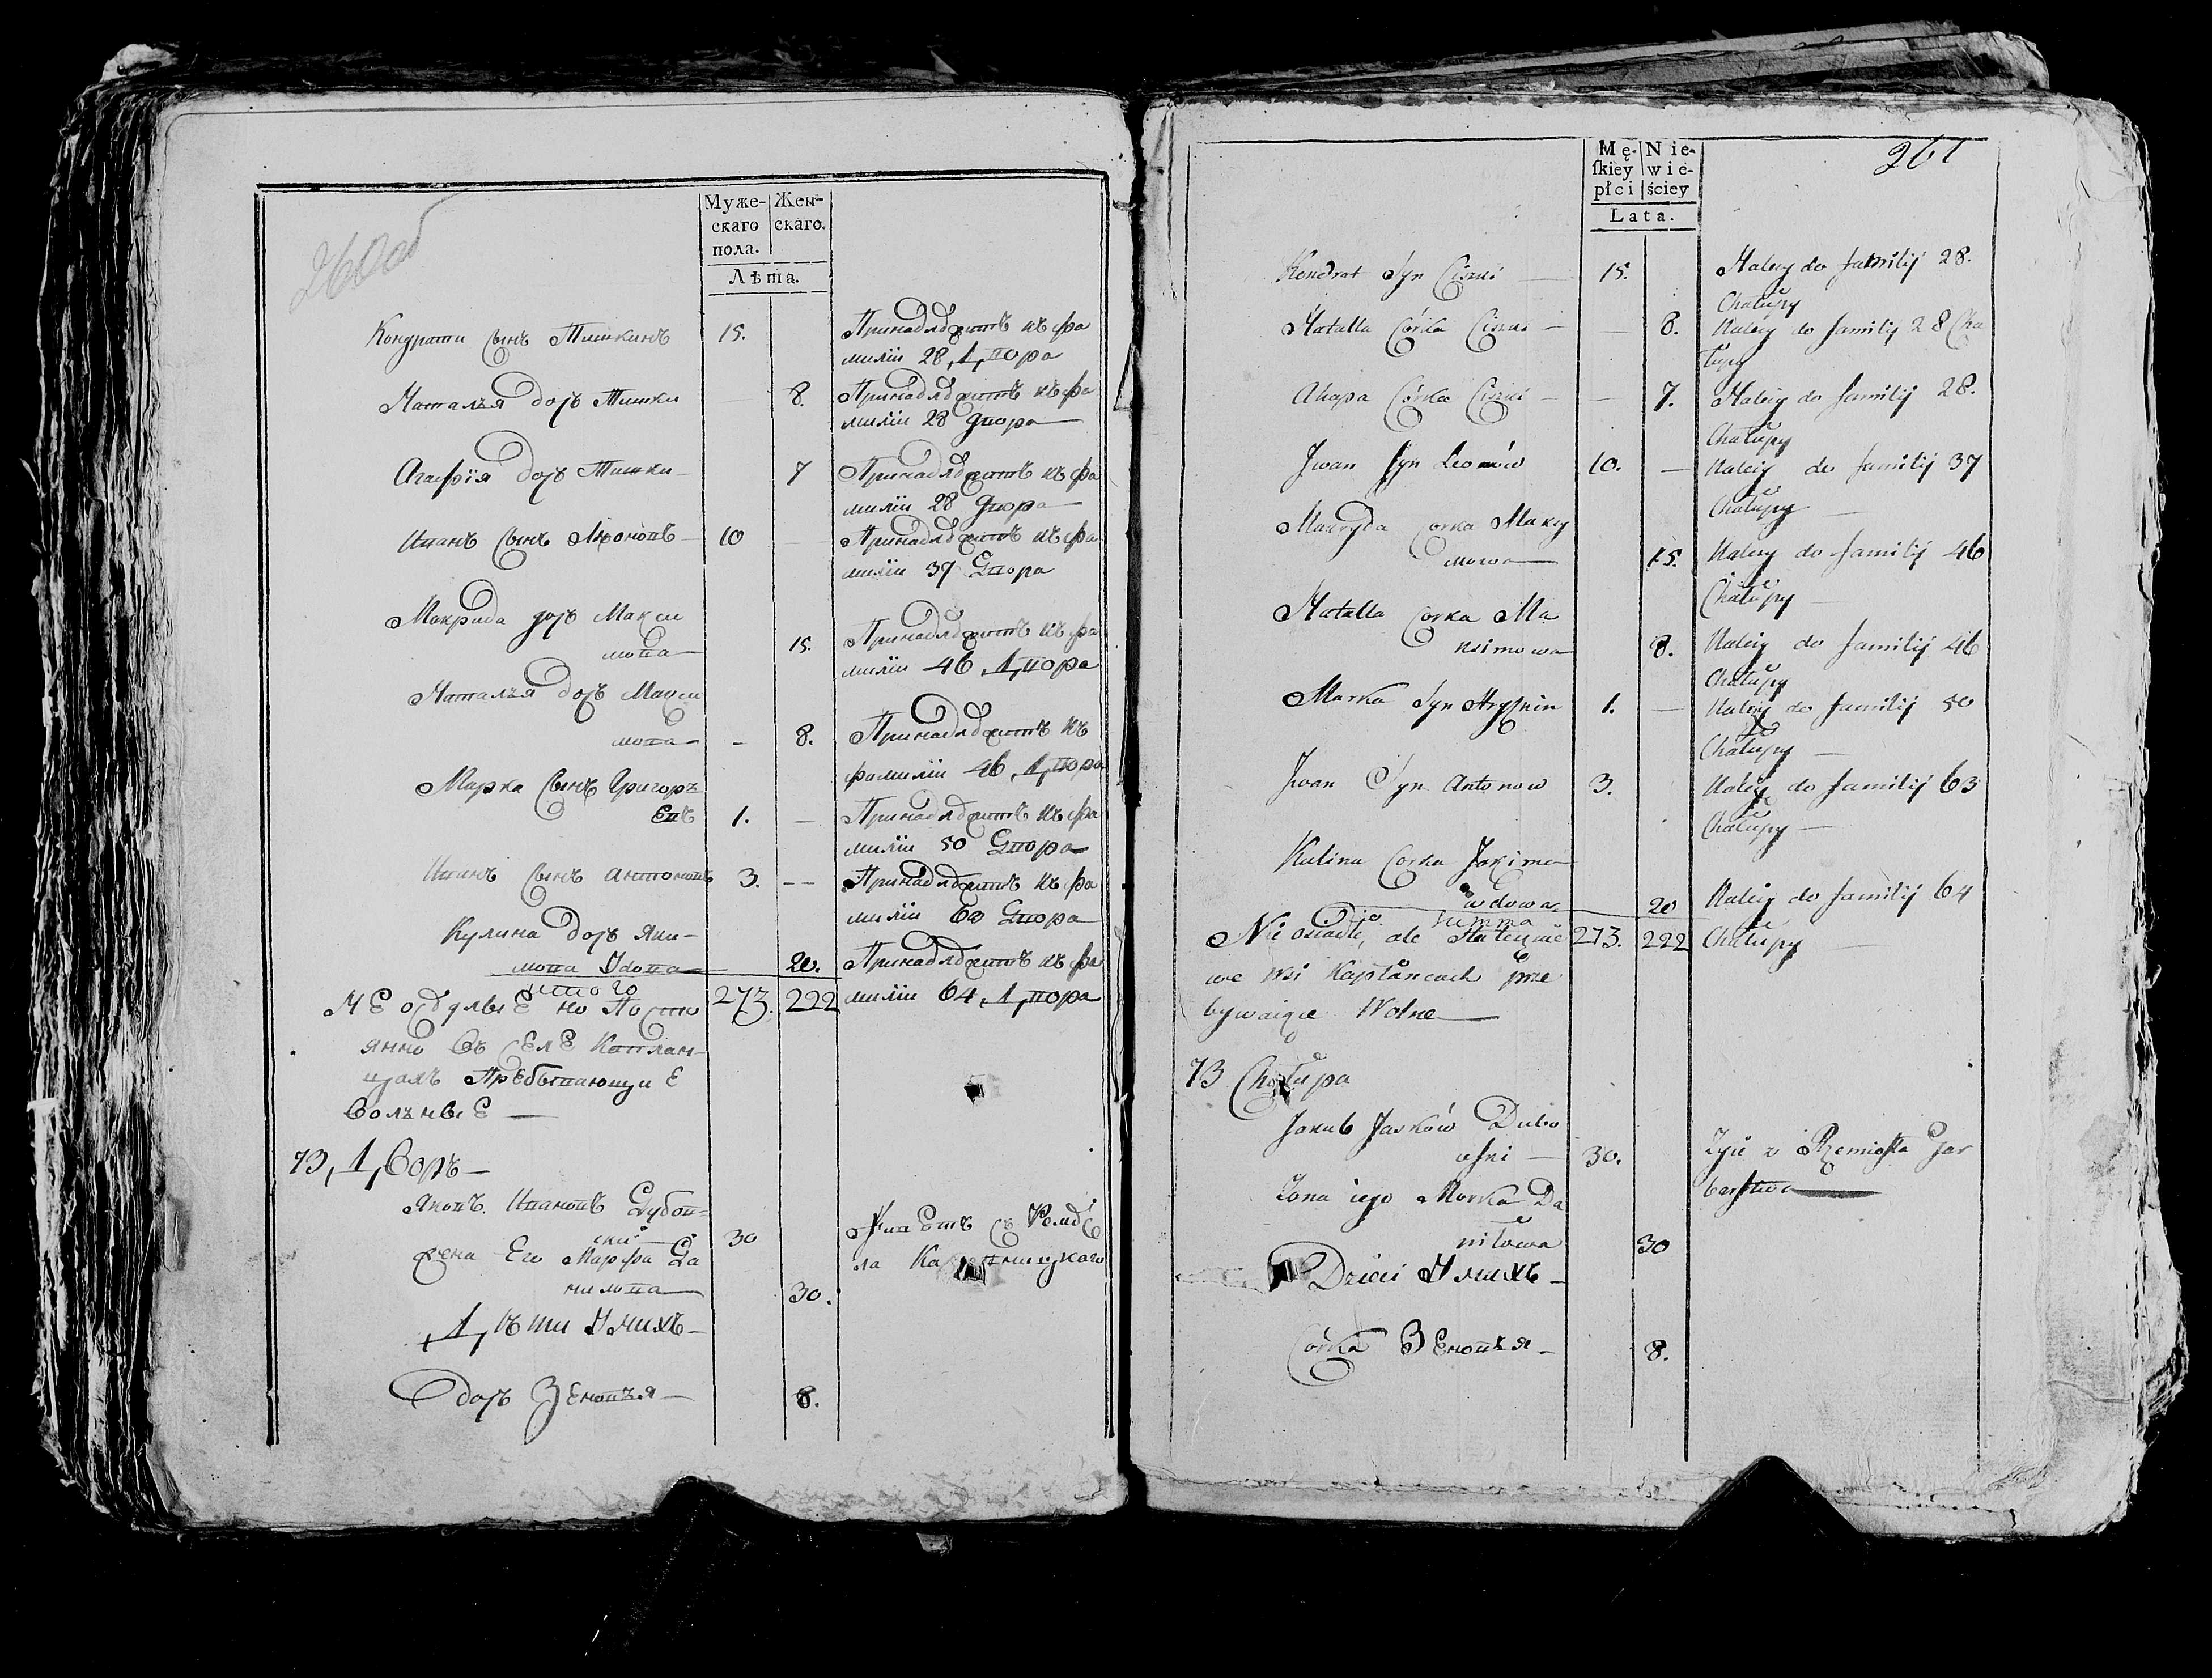 260об
Муже-
скаго
пола.
Жен-
скаго.
Лѣта.
Кондрати сынъ Тишкинъ 15. Принадлежитъ къ фа
миліи 28 двора
Наталья дочь Тишки — 8. Принадлежитъ къ фа
миліи 28 двора
Агафія дочь Тишки — 7 Принадлежитъ къ фа
миліи 28 двора
Иванъ сынъ Леоновъ — 10 — Принадлежитъ къ фа
миліи 37 двора
Макрида дочь Макси
мова 15. Принадлежитъ къ фа
миліи 46 двора
Наталья дочь Макси
мова — - 8. Принадлежитъ къ
фамиліи 46 двора
Марка сынъ Григорь
евъ 1. — Принадлежитъ къ фа
миліи 50 двора
Иванъ сынъ Антоновъ 3. — Принадлежитъ къ фа
миліи 63 двора
Кулина дочь Яки-
мова вдова 20. Принадлежитъ къ фа
миліи 64 двора
итого 273. 222
Не оседлые но Посто
янно въ селе Каплан-
цахъ Пребывающие
вольные —
73, дворъ —
Яковъ Ивановъ Дубов-
ски 30 Живетъ съ Ремесе
ла
жена Его Марфа Да
нилова 30.
дѣти Унихъ —
дочь Зеновья — 8.
261
Mę-
ſkiey
płci
Nie-
wie-
ściey
Lata.
Kondrat Syn Ciszki — 15. Należy do familij 28.
Chałupy
Natalla Córka Ciszki — — 8. Należy do familij 28 Cha
łupy
Ahapa Córka Ciszki — — 7. Należy do familij 28.
Chałupy
Jwan Syn Leonów 10. — Należy do familij 37
Chałupy —
Makryda Corka Maxy
mowa — 15. Należy do familij 46
Chałupy —
Natalla Corka Ma
ksimowa 8. Należy do familij 46
Chałupy
Marka Syn Hryſkin 1. — Należy do familij 50
Chałupy —
Jwan Syn Antonow 3. Należy do familij 63
Chałupy —
Kulina Corka Jakimo
wdowa 20 Należy do familij 64
Chałupy —
Summa 273. 222
Nie osiadłe, ale Statecznie
we wsi Kapłańcach prze
bywaiące Wolne —
73 Chałupa
Jakub Jaśków Dubo
wſki — 30. Żyie z Rzemioſła Gar
barſtwa —
Żona iego Marka Da
niłowa 30
Dzieci Унихъ —
Córka Зеновья — 8.